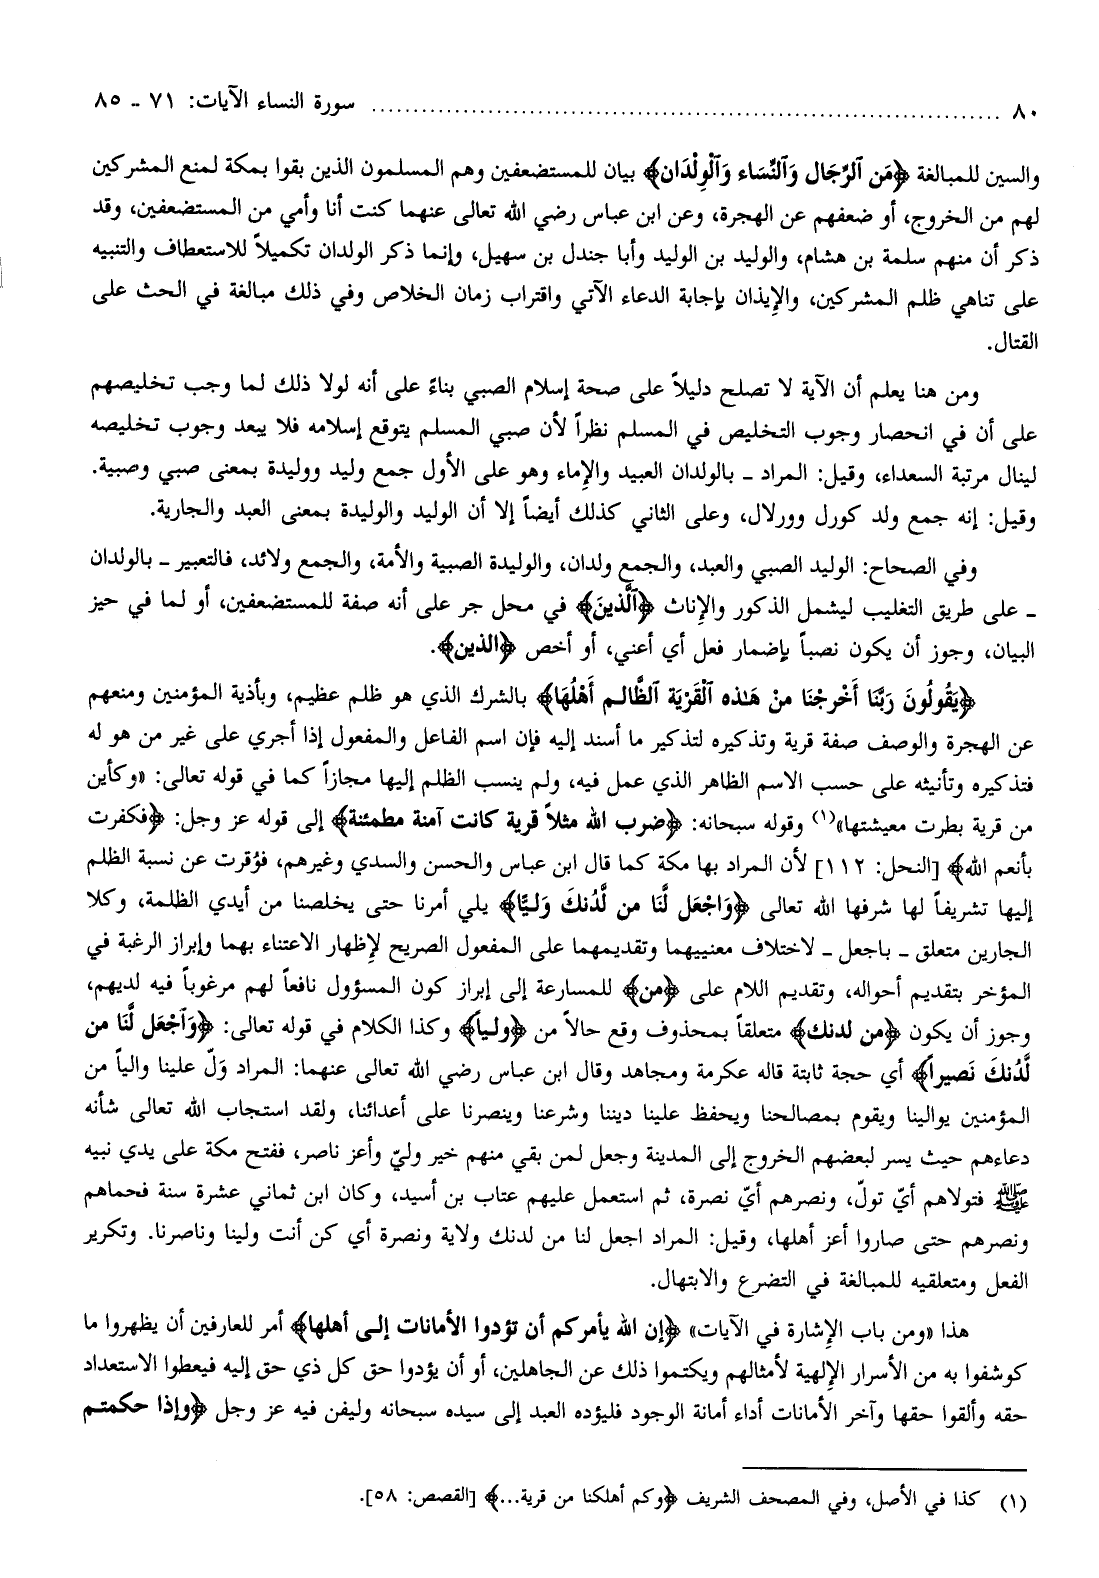 ٨٠ ........................................ سورة النساء الآيات: ٧١ ـ ٨٥
والسين للمبالغة ﴿مَن ٱلرِّجَال وَٱلنِّسَاء وَٱلْوِلْدَان﴾ بيان للمستضعفين وهم المسلمون الذين بقوا بمكة لمنع المشركين
لهم من الخروج، أو ضعفهم عن الهجرة، وعن ابن عباس رضي الله تعالى عنهما كنت أنا وأمي من المستضعفين، وقد
ذكر أن منهم سلمة بن هشام، والوليد بن الوليد وأبا جندل بن سهيل، وإنما ذكر الولدان تكميلاً للاستعطاف والتنبيه
على تناهي ظلم المشركين، والإيذان بإجابة الدعاء الآتي واقتراب زمان الخلاص وفي ذلك مبالغة في الحث على
القتال.
ومن هنا يعلم أن الآية لا تصلح دليلاً على صحة إسلام الصبي بناءً على أنه لولا ذلك لما وجب تخليصهم
على أن في انحصار وجوب التخليص في المسلم نظراً لأن صبي المسلم يتوقع إسلامه فلا يبعد وجوب تخليصه
لينال مرتبة السعداء، وقيل: المراد ـ بالولدان العبيد والإماء وهو على الأول جمع وليد ووليدة بمعنى صبي وصبية.
وقيل: إنه جمع ولد كورل وورلال، وعلى الثاني كذلك أيضاً إلا أن الوليد والوليدة بمعنى العبد والجارية.
وفي الصحاح: الوليد الصبي والعبد، والجمع ولدان، والوليدة الصبية والأمة، والجمع ولائد، فالتعبير ـ بالولدان
ـ على طريق التغليب ليشمل الذكور والإناث ﴿ٱلَّذينَ﴾ في محل جر على أنه صفة للمستضعفين، أو لما في حيز
البيان، وجوز أن يكون نصباً بإضمار فعل أي أعني، أو أخص ﴿الذين﴾.
﴿يَقُولُونَ رَبَّنَا أَخْرجْنَا منْ هَـٰذه ٱلْقَرْيَة ٱلظَّالـم أَهْلُهَا﴾ بالشرك الذي هو ظلم عظيم، وبأذية المؤمنين ومنعهم
عن الهجرة والوصف صفة قرية وتذكيره لتذكير ما أسند إليه فإن اسم الفاعل والمفعول إذا أجري على غير من هو له
فتذكيره وتأنيثه على حسب الاسم الظاهر الذي عمل فيه، ولم ينسب الظلم إليها مجازاً كما في قوله تعالى: «وكأين
من قرية بطرت معيشتها»(١) وقوله سبحانه: ﴿ضرب الله مثلاً قرية كانت آمنة مطمئنة﴾ إلى قوله عز وجل: ﴿فكفرت
بأنعم الله﴾ [النحل: ١١٢] لأن المراد بها مكة كما قال ابن عباس والحسن والسدي وغيرهم، فؤقرت عن نسبة الظلم
إليها تشريفاً لها شرفها الله تعالى ﴿وَٱجْعَل لَّنَا من لَّدُنكَ وَلـيًّا﴾ يلي أمرنا حتى يخلصنا من أيدي الظلمة، وكلا
الجارين متعلق ـ باجعل ـ لاختلاف معنييهما وتقديمهما على المفعول الصريح لإظهار الاعتناء بهما وإبراز الرغبة في
المؤخر بتقديم أحواله، وتقديم اللام على ﴿من﴾ للمسارعة إلى إبراز كون المسؤول نافعاً لهم مرغوباً فيه لديهم،
وجوز أن يكون ﴿من لدنك﴾ متعلقاً بمحذوف وقع حالاً من ﴿ولياً﴾ وكذا الكلام في قوله تعالى: ﴿وَٱجْعَل لَّنَا من
لَّدُنكَ نَصيراً﴾ أي حجة ثابتة قاله عكرمة ومجاهد وقال ابن عباس رضي الله تعالى عنهما: المراد وَلّ علينا والياً من
المؤمنين يوالينا ويقوم بمصالحنا ويحفظ علينا ديننا وشرعنا وينصرنا على أعدائنا، ولقد استجاب الله تعالى شأنه
دعاءهم حيث يسر لبعضهم الخروج إلى المدينة وجعل لمن بقي منهم خير وليّ وأعز ناصر، ففتح مكة على يدي نبيه
ﷺ فتولاهم أيّ تولّ، ونصرهم أيّ نصرة، ثم استعمل عليهم عتاب بن أسيد، وكان ابن ثماني عشرة سنة فحماهم
ونصرهم حتى صاروا أعز أهلها، وقيل: المراد اجعل لنا من لدنك ولاية ونصرة أي كن أنت ولينا وناصرنا. وتكرير
الفعل ومتعلقيه للمبالغة في التضرع والابتهال.
هذا «ومن باب الإشارة في الآيات» ﴿إن الله يأمركم أن تؤدوا الأمانات إلـى أهلها﴾ أمر للعارفين أن يظهروا ما
كوشفوا به من الأسرار الإلهية لأمثالهم ويكتموا ذلك عن الجاهلين، أو أن يؤدوا حق كل ذي حق إليه فيعطوا الاستعداد
حقه وألقوا حقها وآخر الأمانات أداء أمانة الوجود فليؤده العبد إلى سيده سبحانه وليفن فيه عز وجل ﴿وإذا حكمتـم
(١) كذا في الأصل، وفي المصحف الشريف ﴿وكم أهلكنا من قرية...﴾ [القصص: ٥٨].